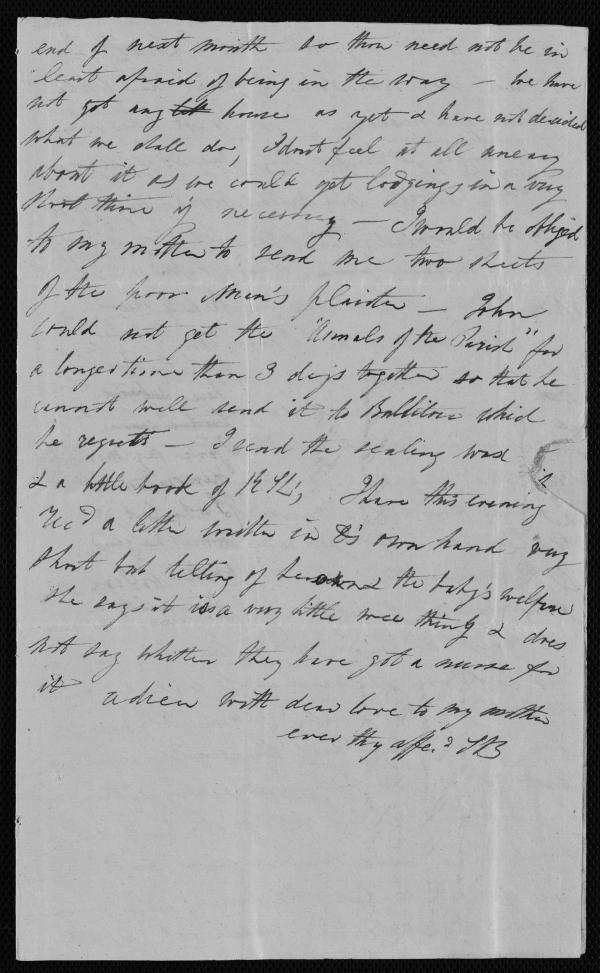 end of next month so thou need not be in
least afraid of being in the way – we have
not got any house as yet & have not decided
what we shall do, I dont feel at all uneasy
about it as we could get lodgings in a very
short time if necessary – I would be obliged
to my mother to send me two sheets
of the poor Man's plaister – John
could not get the "Annals of the Parish" for
a longer time than 3 days together so that he
cannot well send it to Ballitore which
he regrets – I send the sealing wax
& a little book of
I have this evening
recd a letter written in 's own hand very
short but telling of her own & the baby's welfare
she says it is a very little wee thing & does
not say whether they have got a nurse for
it adieu with dear love to my mother
ever thy affec.